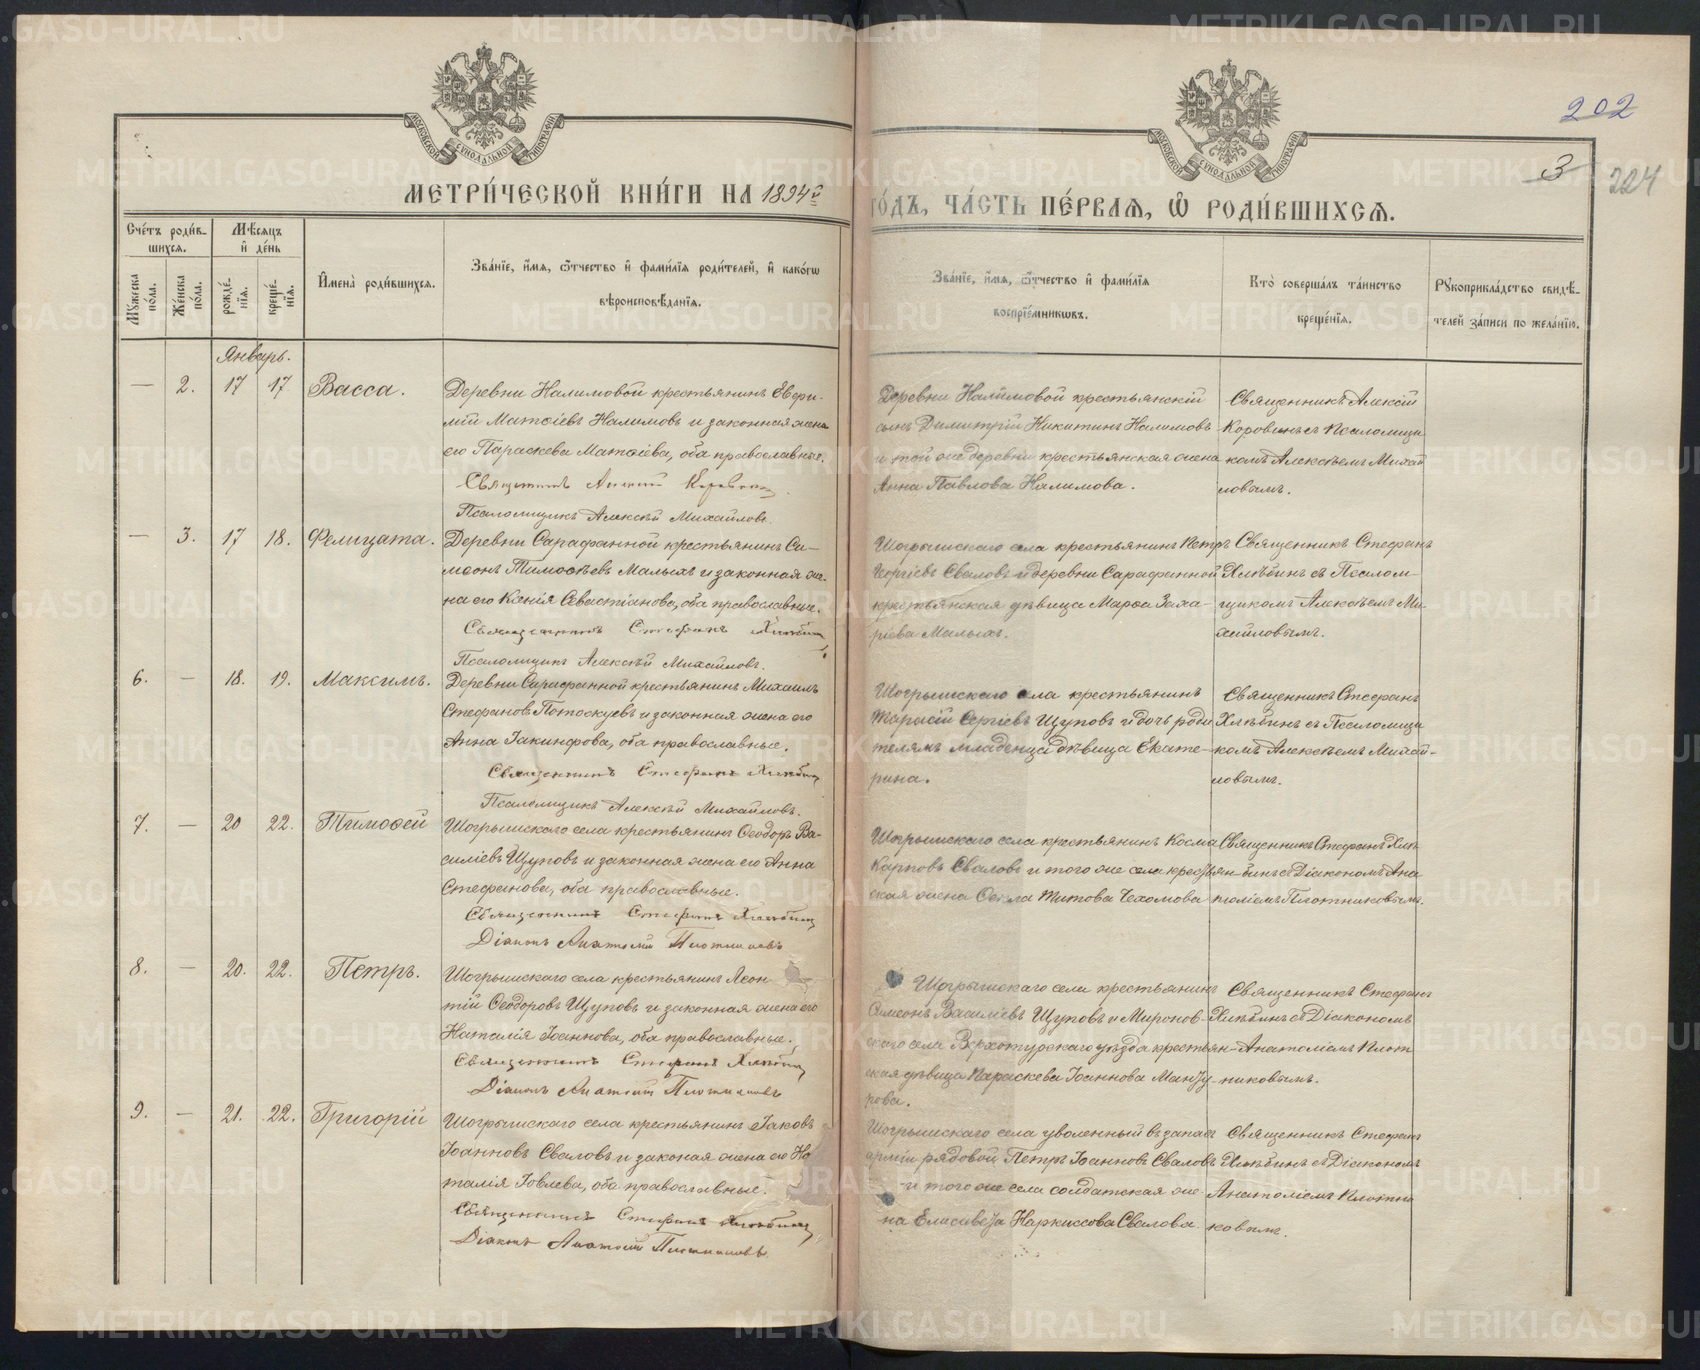 202
3
224
МОСКОВСКОЙ СѴНОДАЛЬНОЙ ТИПОГРАФІИ
МОСКОВСКОЙ СѴНОДАЛЬНОЙ ТИПОГРАФІИ
МЕТРИ́ЧЕСКОЙ КНИ́ГИ НА 1894 г
ГО́ДЪ, ЧА́СТЬ ПЕ́РВАѦ, Ѿ РОДИ́ВШИХСѦ.
Сче́тъ роди́в-
шихсѧ.
Мѣ́сѧцъ
и҆ де́нь
Мꙋ́жеска по́ла.
Же́нска по́ла.
рожде́-нїѧ.
креще́-нїѧ.
И҆мена̀ роди́вшихсѧ.
Зва́нїе, и҆́мѧ, ѻ҆́тчество и҆ фами́лїѧ роди́телей, и҆ како́гѡ
вѣроисповѣ́данїѧ.
Зва́нїе, и҆́мѧ, ѻ҆́тчество и҆ фами́лїѧ
воспрїе́мникѡвъ.
Кто̀ соверша́лъ та́инство
креще́нїѧ.
Рꙋкоприкла́дство свидѣ́-
телей за́писи по жела́нїю.
Январь.
— 2. 17 17 Васса.
Деревни Налимовой крестьянинъ Евфи-
мій Матѳіевъ Налимовъ и законная жена
его Параскева Матѳіева, оба православные.
Священникъ Алексій Коровинъ
Псаломщикъ Алексѣй Михайловъ.
Деревни Налимовой крестьянскій
сынъ Димитрій Никитинъ Налимовъ
и той же деревни крестьянская жена
Анна Павлова Налимова.
Священникъ Алексій
Коровинъ съ Псаломщи
комъ Алексѣемъ Михай
ловымъ.
— 3. 17 18. Фелицата.
Деревни Сарафанной крестьянинъ Си-
меонъ Тимоѳеевъ Малыхъ и законная же-
на его Ксенія Севастіанова, оба православные.
Священникъ Стефанъ Хлѣбинъ
Псаломщикъ Алексѣй Михайловъ.
Шогрышскаго села крестьянинъ Петръ
Георгіевъ Сваловъ и деревни Сарафанной
крестьянская дѣвица Марѳа Заха-
ріева Малыхъ.
Священникъ Стефанъ
Хлѣбинъ съ Псалом-
щикомъ Алексѣемъ Ми-
хайловымъ.
6. — 18. 19. Максимъ.
Деревни Сарафанной крестьянинъ Михаилъ
Стефановъ Потоскуевъ и законная жена его
Анна Іакинфова, оба православные.
Священникъ Стефанъ Хлѣбинъ
Псаломщикъ Алексѣй Михайловъ.
Шогрышскаго села крестьянинъ
Тарасій Сергіевъ Щуповъ и дочь роди
телямъ младенца дѣвица Екате-
рина.
Священникъ Стефанъ
Хлѣбинъ съ Псаломщи
комъ Алексѣемъ Михай-
ловымъ.
7. — 20 22. Тимоѳей
Шогрышскаго села крестьянинъ Ѳеодоръ Ва-
силіевъ Щуповъ и законная жена его Анна
Стефанова, оба православные.
Священникъ Стефанъ Хлѣбинъ
Діаконъ Анатолій Плотниковъ
Шогрышскаго села крестьянинъ Косма
Карповъ Сваловъ и того же села крестьян-
ская жена Ѳекла Титова Чехомова
Священникъ Стефанъ Хлѣ-
бинъ съ Діакономъ Ана
толіемъ Плотниковымъ.
8. — 20. 22. Петръ.
Шогрышскаго села крестьянинъ Леон
тій Ѳеодоровъ Щуповъ и законная жена его
Наталія Іоаннова, оба православные.
Священникъ Стефанъ Хлѣбинъ
Діаконъ Анатолій Плотниковъ
Шогрышскаго села крестьянинъ
Симеонъ Василіевъ Щуповъ и Миронов-
скаго села Верхотурскаго уѣзда крестьян-
ская дѣвица Параскева Іоаннова Манзу
рова.
Священникъ Стефанъ
Хлѣбинъ съ Діакономъ
Анатоліемъ Плот
никовымъ.
9. — 21. 22. Григорій
Шогрышскаго села крестьянинъ Іаковъ
Іоанновъ Сваловъ и законая жена его На
талія Іовлева, оба православные.
Священникъ Стефанъ Хлѣбинъ
Діаконъ Анатолій Плотниковъ
Шогрышскаго села уволенный въ запасъ
арміи рядовой Петръ Іоанновъ Сваловъ
и того же села солдатская же
на Елисавета Наркиссова Свалова.
Священникъ Стефанъ
Хлѣбинъ съ Діакономъ
Анатоліемъ Плотни
ковымъ.
METRIKI.GASO-URAL.RU